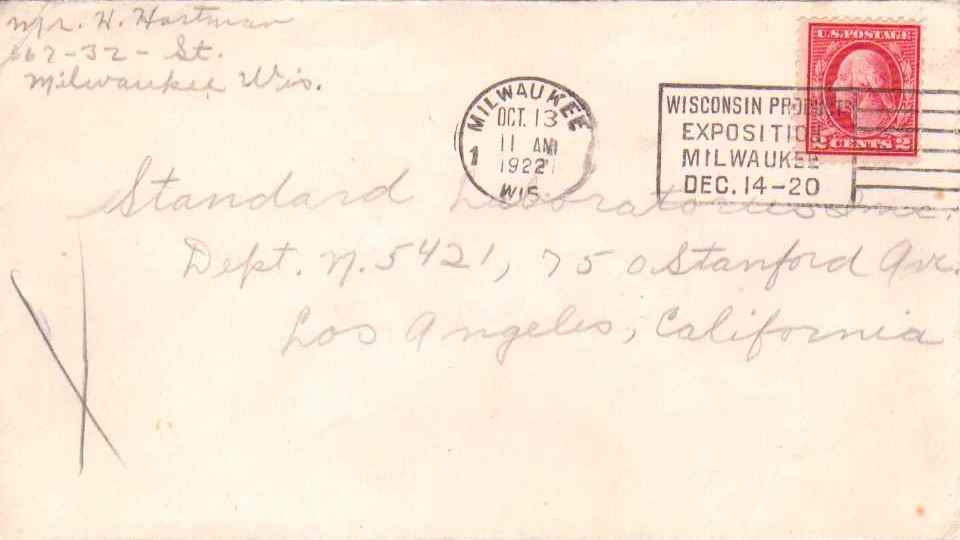 Mr. H. Hartman
667-32- St.
Milwaukee Wis.
MILWAUKEE
OCT. 13
11 AM
1922
1
WIS.
WISCONSIN PRODUCTS
EXPOSITION
MILWAUKEE
DEC. 14-20
U.S. POSTAGE
2 CENTS 2
Standard Laboratories Inc.
Dept. N. 5421, 750 Stanford Ave.
Los Angeles, California